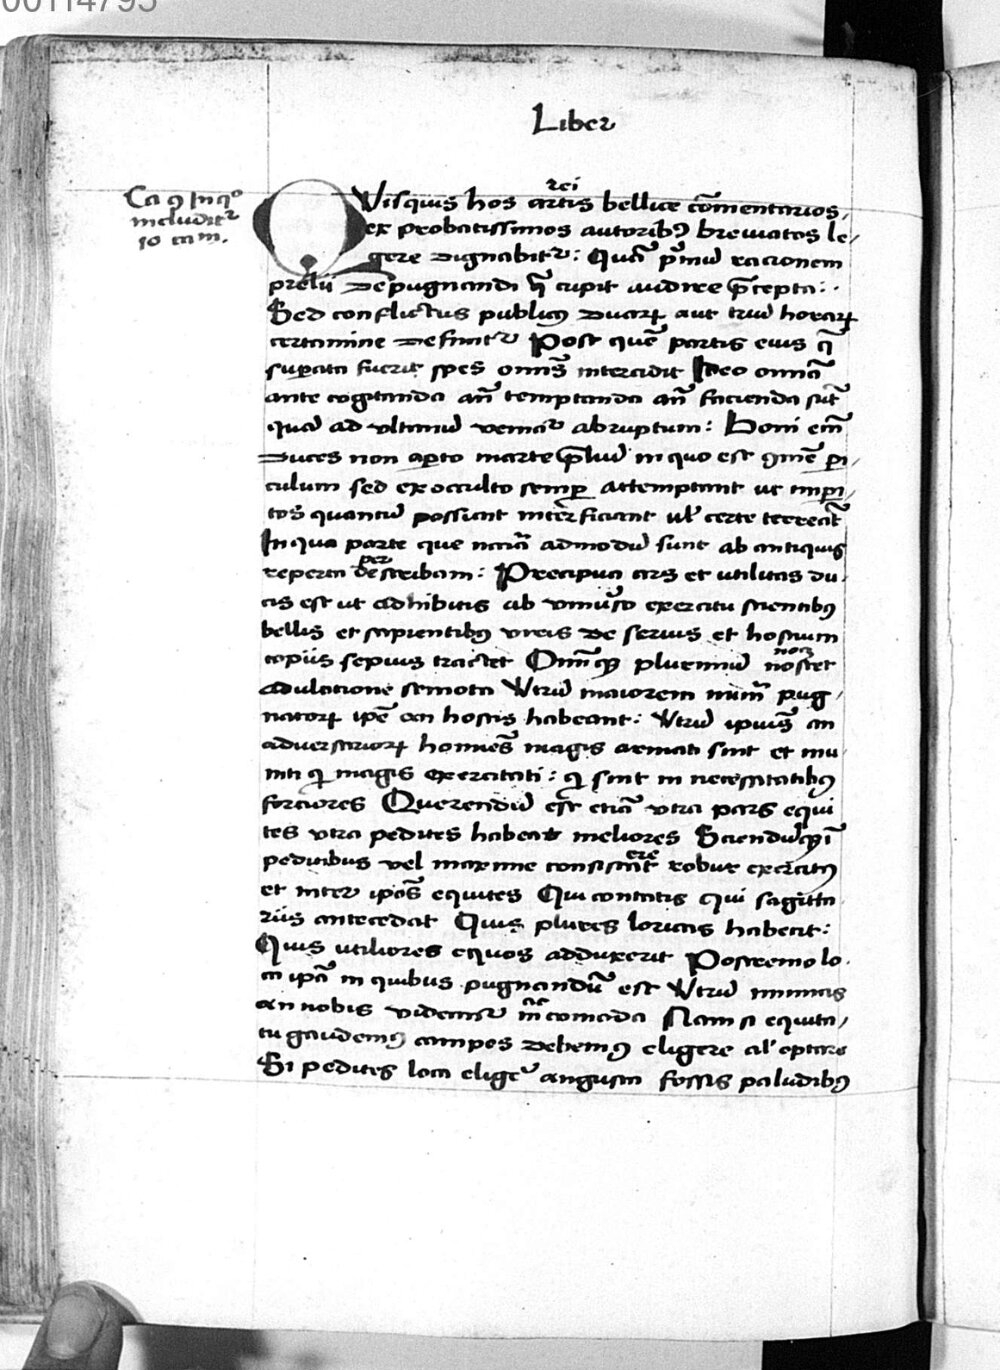 00114795
Liber
Ca 9 In q°
includit᷑
10 cam.
QVisquis hos artis rei bellice com̄entarios,
ex probatissimos autoribꝰ breuiatos le,
gere dignabit᷑: Quā pͥmū racionem
prelii depugnandi q̄ cupit audire p̄cepta:.
Sed conflictus publicꝰ duarꝝ aut triū horarꝝ
certamine definit᷑ Post quē partis eius q̄
suꝑata fuerit spes om̄s intercidit Ideo omīa
ante cogitanda an̄ temptanda an̄ facienda sūt
quā ad vltimū veniat᷑ abruptum: Boni em̄
duces non aꝑto marte p̄liū in quo est 9mūe ꝑi,
culum sed ex occulto semꝑ attemptant vt imꝑi,
tos quantū possunt interficiant ul̓ certe terreāt
In qua parte que nccīa admodū sunt ab antiquis
reperta per describam: Precipua ars et utilitas du,
cis est ut adhibitis ab vniūso exercitu scientibꝰ
bellis et sapientibꝰ viris de seruis et hostium
copiis sepius tractet Om̄iqꝫ plurimū noster nocꝫ
adulatione semota Vtrū maiorem num̄ pug,
natorꝝ ip̄e an hostis habeant: Vtrū ipius̄ an
aduersariorꝝ homines̄ magis armati sint et mu,
niti q̇ magis exercitati: q̇ sint in necessitatibꝰ
forciores Querendū est̄ etiā vtra pars equi
tes vtra pedites habeat meliores Sciendūqꝫ ī
peditibus vel maxime consistint ere robur exercitꝰ
et inter ipōs equites Qui contatis qui sagitta
riis antecedat Quis plures loricas habeat:
Quis utiliores equos adduxerit Postremo lo,
ca ipā in quibus pugnandū est Vtrū inimicis
an nobis videant᷑ īn comoda Nam si equita,
tu gaudemꝰ campos debemꝰ eligere al̓ optare
Si pedites loca elige᷑ angusta fossis paludibꝰ